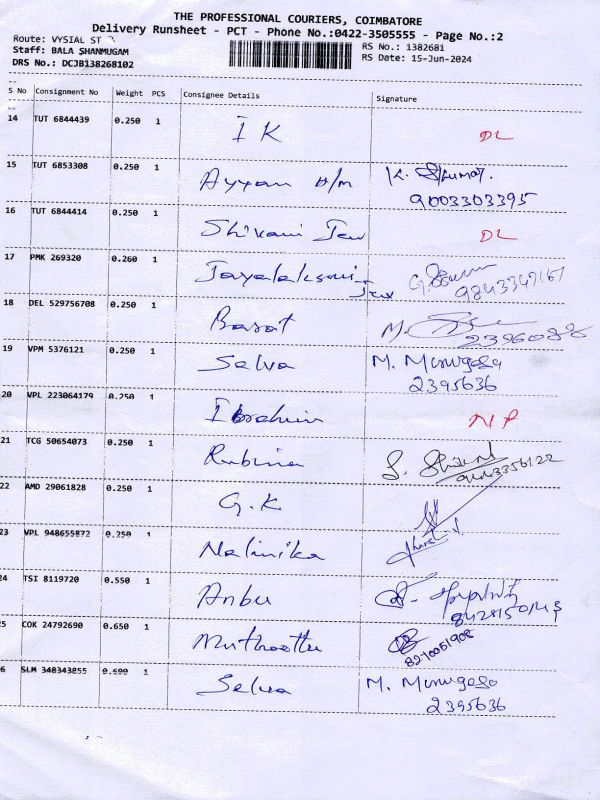 THE PROFESSIONAL COURIERS, COIMBATORE
Delivery Runsheet - PCT - Phone No.:0422-3505555 - Page No.:2
Route: VYSIAL ST
RS No.: 1382681
Staff: BALA SHANMUGAM
RS Date: 15-Jun-2024
DRS No.: DCJB138268102
S No Consignment No Weight PCS Consignee Details Signature
14 TUT 6844439 0.250 1 I K DL
15 TUT 6853308 0.250 1 Ayyan H/M K.
9003303395
16 TUT 6844414 0.250 1 Shivani Jew DL
17 PMK 269320 0.260 1 Jayalaksmi
Jew
18 DEL 529756708 0.250 1 Barat M.
19 VPM 5376121 0.250 1 Selva M. Murugesa
2395636
20 VPL 223064179 0.250 1 Ibrahim NP
21 TCG 50654073 0.250 1 Rubina
22 AMD 29061828 0.250 1 G.K
23 VPL 948655872 0.250 1 Nalinika
24 TSI 8119720 0.550 1 Anbu
25 COK 24792690 0.650 1 Muthoottu
8270051908
6 SLM 348343855 0.600 1 Selva M. Murugesa
2395636